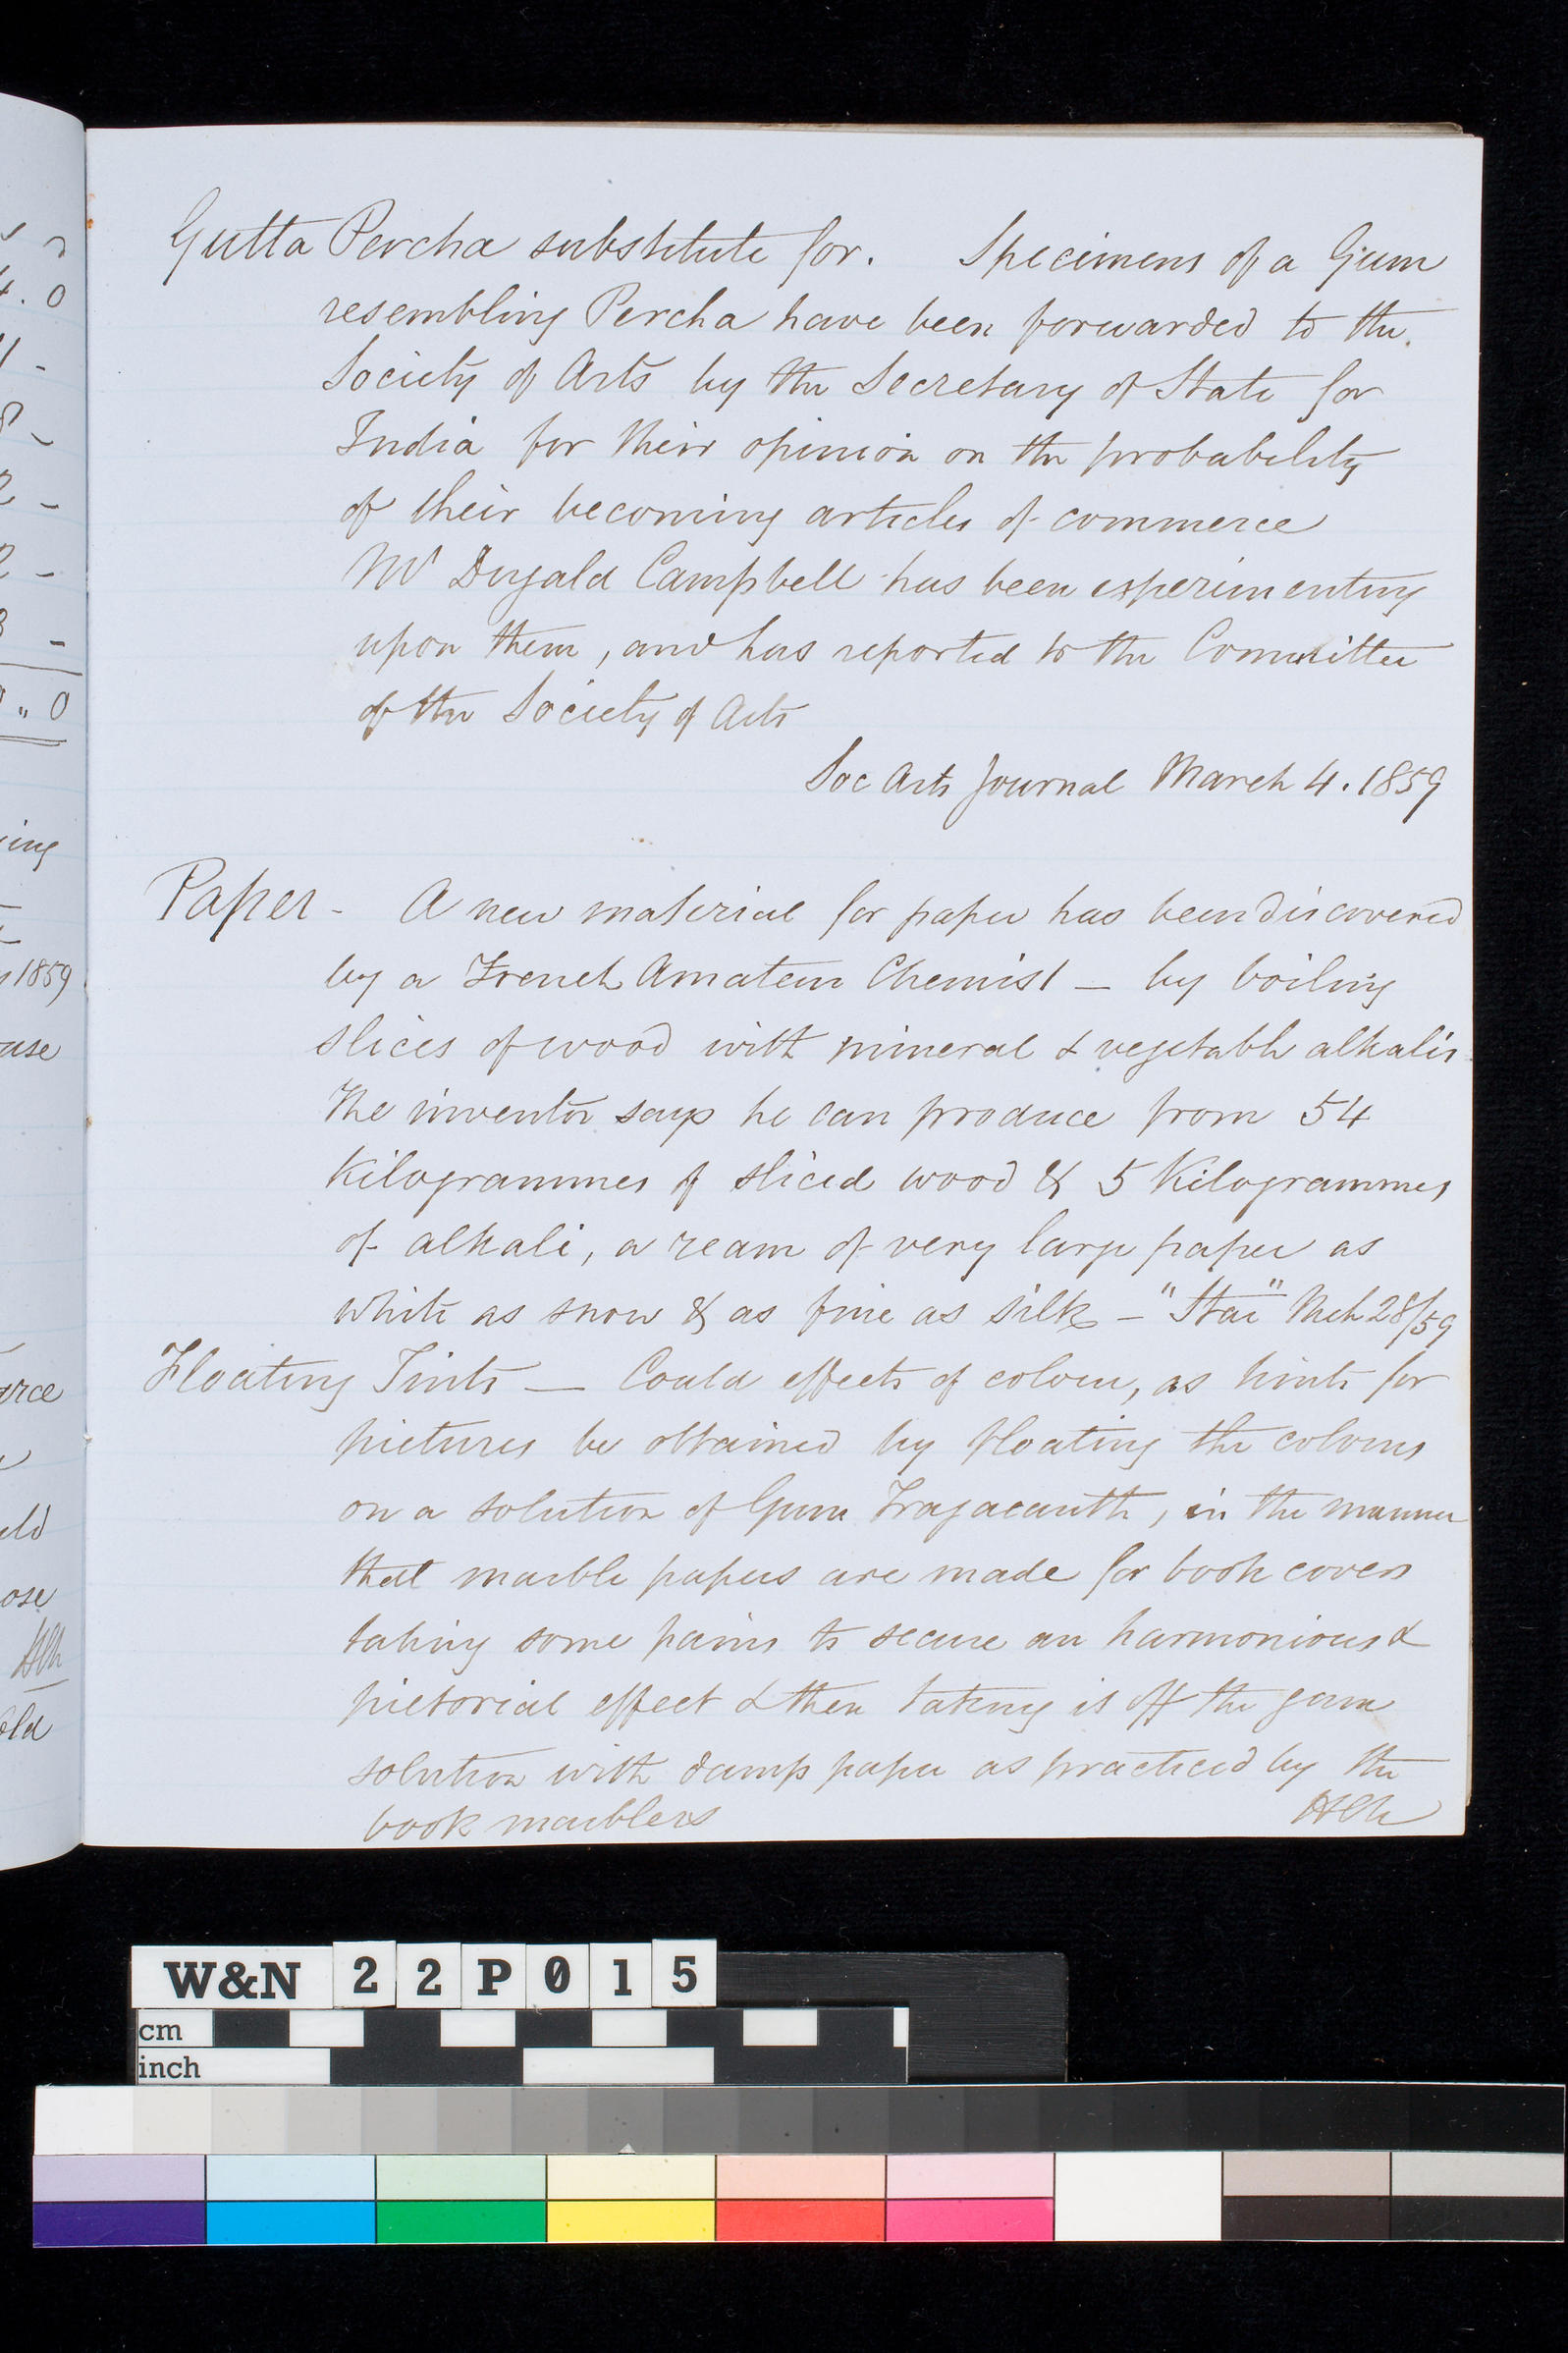 Gutta Percha substitute for. Specimens of a Gum
resembling Percha have been forwarded to the
Society of Arts by the Secretary of State for
India for their opinion on the probability
of their becoming articles of commerce
Mr Dugald Campbell has been experimenting
upon them, and has reported to the Committee
of the Society of Arts
Soc Arts Journal March 4. 1859
Paper - A new material for paper has been discovered
by a French Amateur Chemist - by boiling
slices of wood with mineral & vegetable alkalis
The inventor says he can produce from 54
Kilogrammes of sliced wood & 5 Kilogrammes
of alkali, a ream of very large paper as
white as snow & as fine as silk - "Star" Mch 28/59
Floating Tints - Could effects of colour, as hints for
pictures be obtained by floating the colours
on a solution of Gum Tragacanth, in the manner
that marble papers are made for book covers
taking some pains to secure an harmonious &
pictorial effect & then taking is off the gum
solution with damp paper as practiced by the
book marblers
4.0
ing
1859
use
arce
eld
ose
old
W&N 22P015
cm
inch